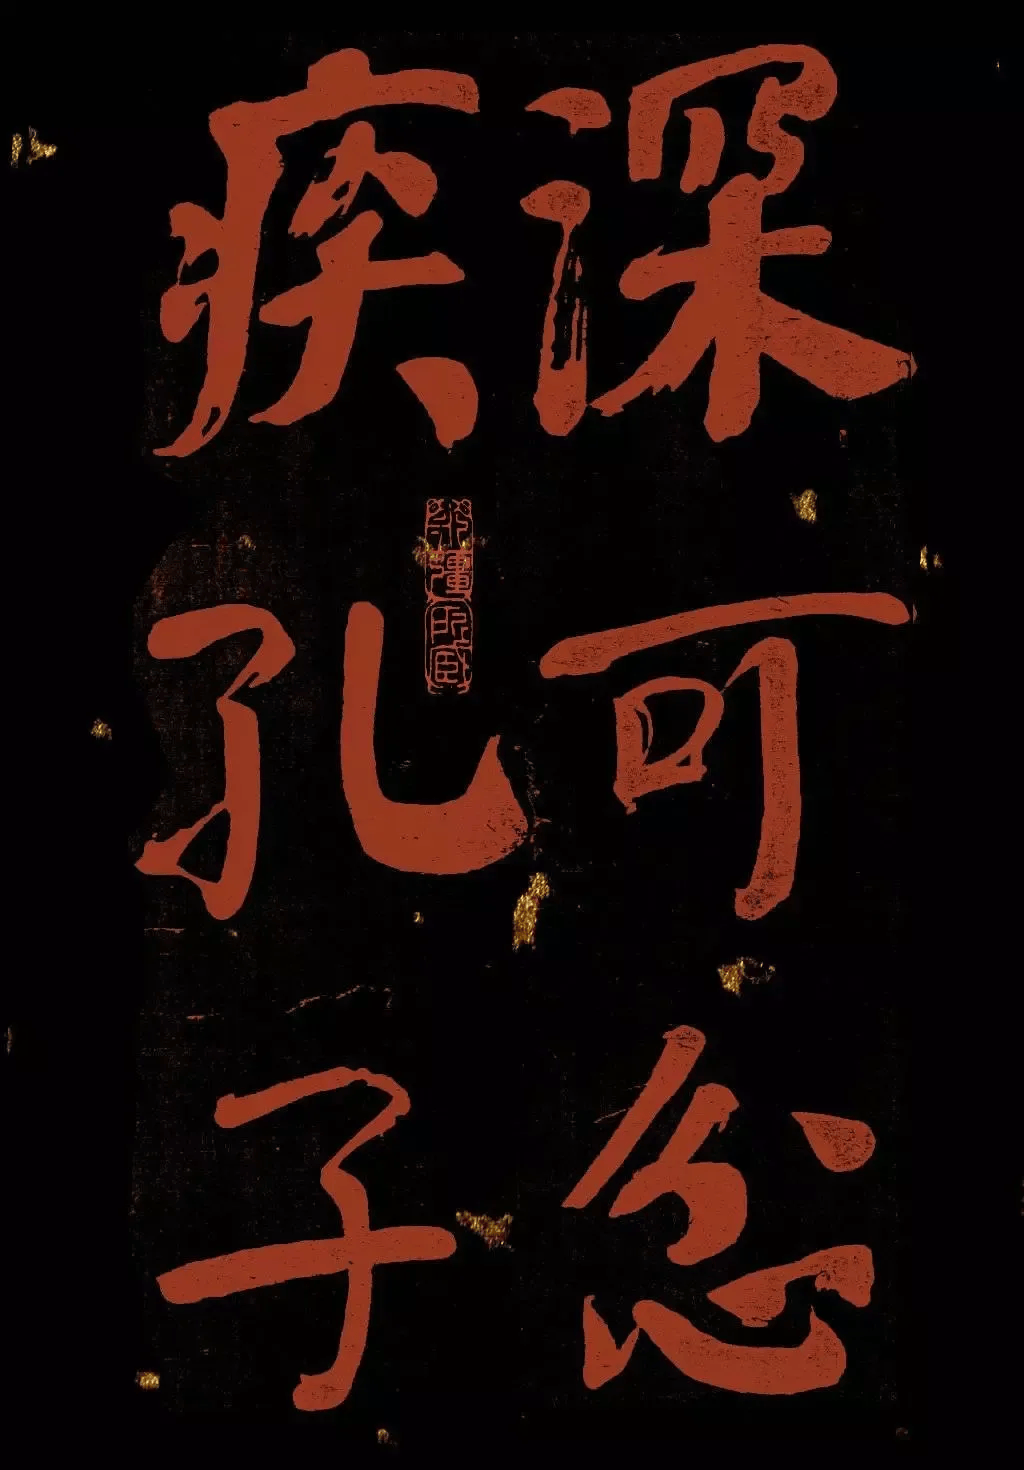 深可忿
疾孔子